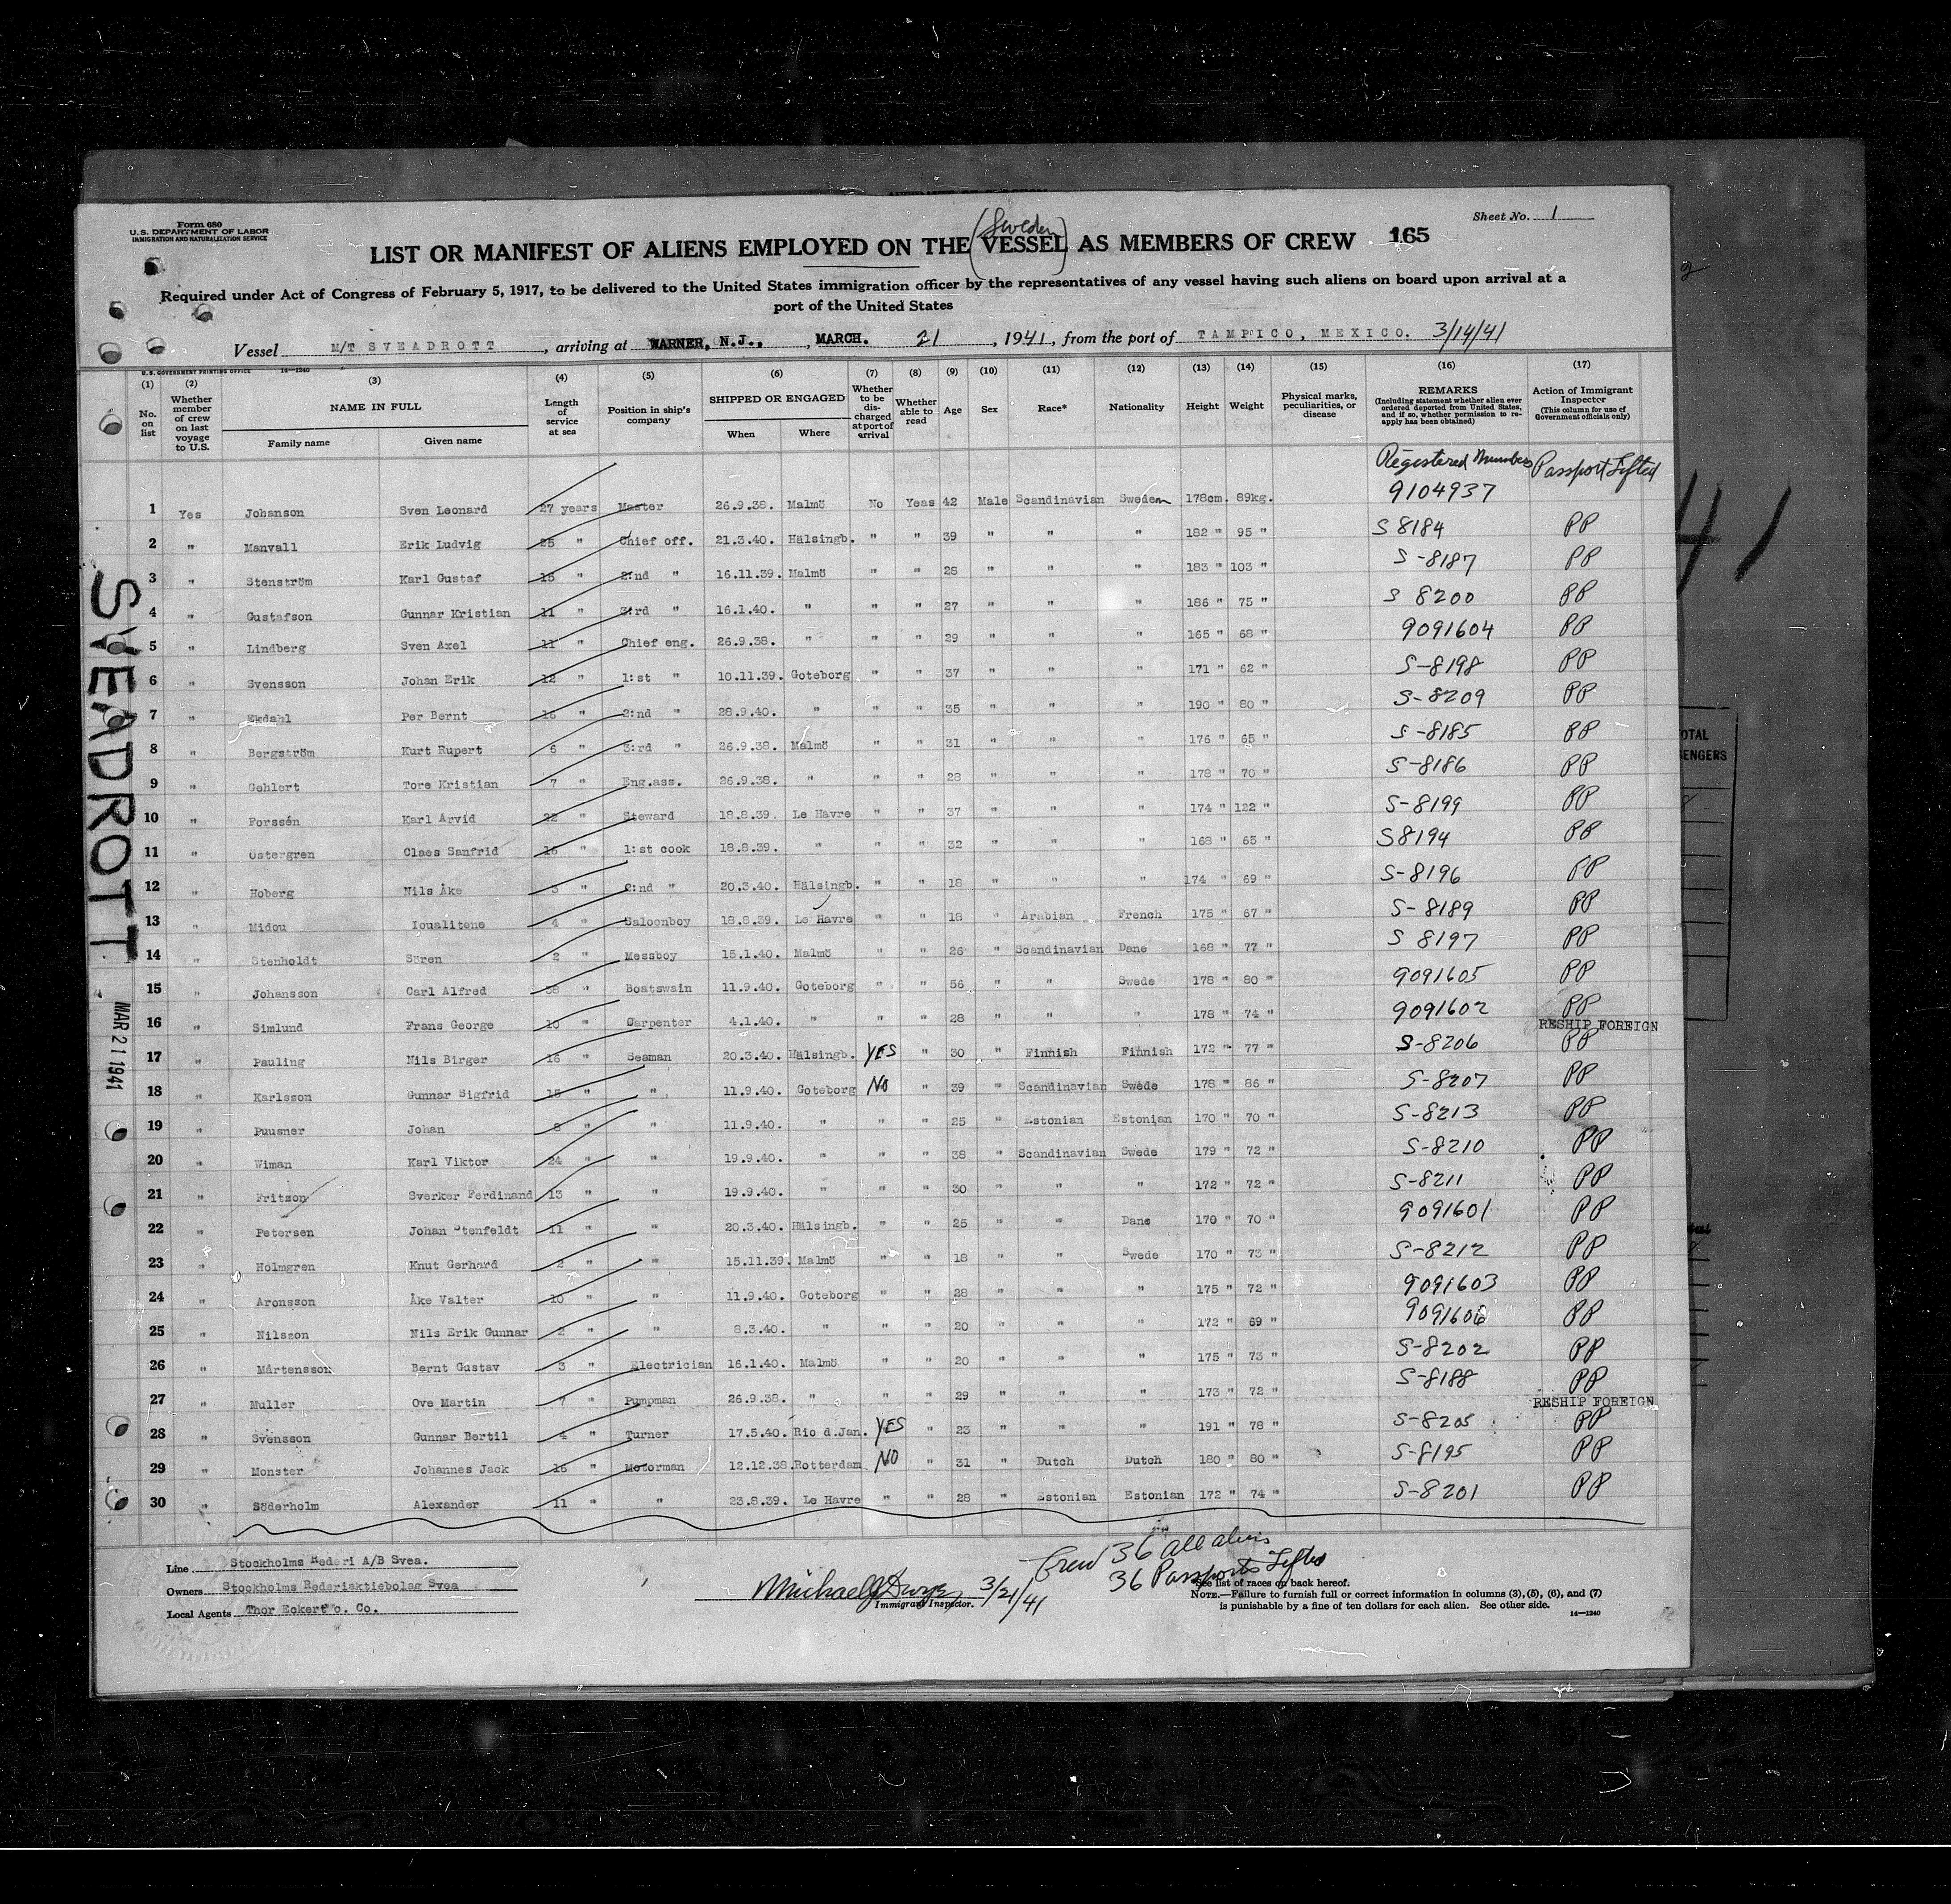 Form 680
U.S. DEPARTMENT OF LABOR
IMMIGRATION AND NATURALIZATION SERVICE
Sheet No. 1
(Sweden)
LIST OR MANIFEST OF ALIENS EMPLOYED ON THE VESSEL AS MEMBERS OF CREW 165
Required under Act of Congress of February 5, 1917, to be delivered to the United States immigration officer by the representatives of any vessel having such aliens on board upon arrival at a
port of the United States
Vessel M/T SVEADROTT, arriving at WARNER, N.J., MARCH. 21, 1941, from the port of TAMPICO, MEXICO. 3/14/41
U.S. GOVERNMENT PRINTING OFFICE 14—1240
(1) (2) (3) (4) (5) (6) (7) (8) (9) (10) (11) (12) (13) (14) (15) (16) (17)
No. on list
Whether member of crew on last voyage to U.S.
NAME IN FULL
Family name Given name
Length of service at sea
Position in ship's company
SHIPPED OR ENGAGED
When Where
Whether to be discharged at port of arrival
Whether able to read
Age Sex Race* Nationality Height Weight
Physical marks, peculiarities, or disease
REMARKS
(Including statement whether alien ever ordered deported from United States, and if so, whether permission to reapply has been obtained)
Action of Immigrant Inspector
(This column for use of Government officials only)
Registered Numbers Passport Lifted
1 Yes Johanson Sven Leonard 27 years Master 26.9.38. Malmö No Yeas 42 Male Scandinavian Sweden 178cm. 89kg. 9104937
2 " Manvall Erik Ludvig 25 " Chief off. 21.3.40. Hälsingb. " " 39 " " " 182 " 95 " S 8184 PP
3 " Stenström Karl Gustaf 15 " 2:nd " 16.11.39. Malmö " " 28 " " " 183 " 103 " S-8187 PP
4 " Gustafson Gunnar Kristian 11 " 3:rd " 16.1.40. " " " 27 " " " 186 " 75 " S 8200 PP
5 " Lindberg Sven Axel 11 " Chief eng. 26.9.38. " " " 29 " " " 165 " 68 " 9091604 PP
6 " Svensson Johan Erik 12 " 1:st " 10.11.39. Goteborg " " 37 " " " 171 " 62 " S-8198 PP
7 " Ekdahl Per Bernt 16 " 2:nd " 28.9.40. " " " 35 " " " 190 " 80 " S-8209 PP
8 " Bergström Kurt Rupert 6 " 3:rd " 26.9.38. Malmö " " 31 " " " 176 " 65 " S-8185 PP
9 " Gehlert Tore Kristian 7 " Eng.ass. 26.9.38. " " " 28 " " " 178 " 70 " S-8186 PP
10 " Forssén Karl Arvid 22 " Steward 18.8.39. Le Havre " " 37 " " " 174 " 122 " S-8199 PP
11 " Ostergren Claes Sanfrid 16 " 1:st cook 18.8.39. " " " 32 " " " 168 " 65 " S8194 PP
12 " Hoberg Nils Åke 3 " 2:nd " 20.3.40. Hälsingb. " " 18 " " " 174 " 69 " S-8196 PP
13 " Midou Ioualitene 4 " Saloonboy 18.8.39. Le Havre " " 18 " Arabian French 175 " 67 " S-8189 PP
14 " Stenholdt Sören 2 " Messboy 15.1.40. Malmö " " 26 " Scandinavian Dane 168 " 77 " S 8197 PP
15 " Johansson Carl Alfred 38 " Boatswain 11.9.40. Goteborg " " 56 " " Swede 178 " 80 " 9091605 PP
16 " Simlund Frans George 10 " Carpenter 4.1.40. " " " 28 " " " 178 " 74 " 9091602 PP
RESHIP FOREIGN
17 " Pauling Nils Birger 16 " Seaman 20.3.40. Hälsingb. YES " 30 " Finnish Finnish 172 " 77 " S-8206 PP
18 " Karlsson Gunnar Sigfrid 15 " " 11.9.40. Goteborg NO " 39 " Scandinavian Swede 178 " 86 " S-8207 PP
19 " Puusner Johan 8 " " 11.9.40. " " " 25 " Estonian Estonian 170 " 70 " S-8213 PP
20 " Wiman Karl Viktor 24 " " 19.9.40. " " " 38 " Scandinavian Swede 179 " 72 " S-8210 PP
21 " Fritzon Sverker Ferdinand 13 " " 19.9.40. " " " 30 " " " 172 " 72 " S-8211 PP
22 " Petersen Johan Stenfeldt 11 " " 20.3.40. Hälsingb. " " 25 " " Dane 170 " 70 " 9091601 PP
23 " Holmgren Knut Gerhard 2 " " 15.11.39. Malmö " " 18 " " Swede 170 " 73 " S-8212 PP
24 " Aronsson Åke Valter 10 " " 11.9.40. Goteborg " " 28 " " " 175 " 72 " 9091603 PP
25 " Nilsson Nils Erik Gunnar 2 " " 8.3.40. " " " 20 " " " 172 " 69 " 9091606 PP
26 " Mårtensson Bernt Gustav 3 " Electrician 16.1.40. Malmö " " 20 " " " 175 " 73 " S-8202 PP
27 " Muller Ove Martin 7 " Pumpman 26.9.38. " " " 29 " " " 173 " 72 " S-8188 PP
RESHIP FOREIGN
28 " Svensson Gunnar Bertil 4 " Turner 17.5.40. Rio d.Jan. YES " 23 " " " 191 " 78 " S-8205 PP
29 " Monster Johannes Jack 16 " Motorman 12.12.38. Rotterdam NO " 31 " Dutch Dutch 180 " 80 " S-8195 PP
30 " Söderholm Alexander 11 " " 23.8.39. Le Havre " " 28 " Estonian Estonian 172 " 74 " S-8201 PP
SVEADROTT
MAR 21 1941
Crew 36 all aliens
36 Passports Lifted
Line Stockholms Rederi A/B Svea.
Owners Stockholms Rederiaktiebolag Svea
Local Agents Thor Eckert o. Co.
3/21/41
Immigrant Inspector.
See list of races on back hereof.
NOTE.—Failure to furnish full or correct information in columns (3), (5), (6), and (7)
is punishable by a fine of ten dollars for each alien. See other side.
14—1240